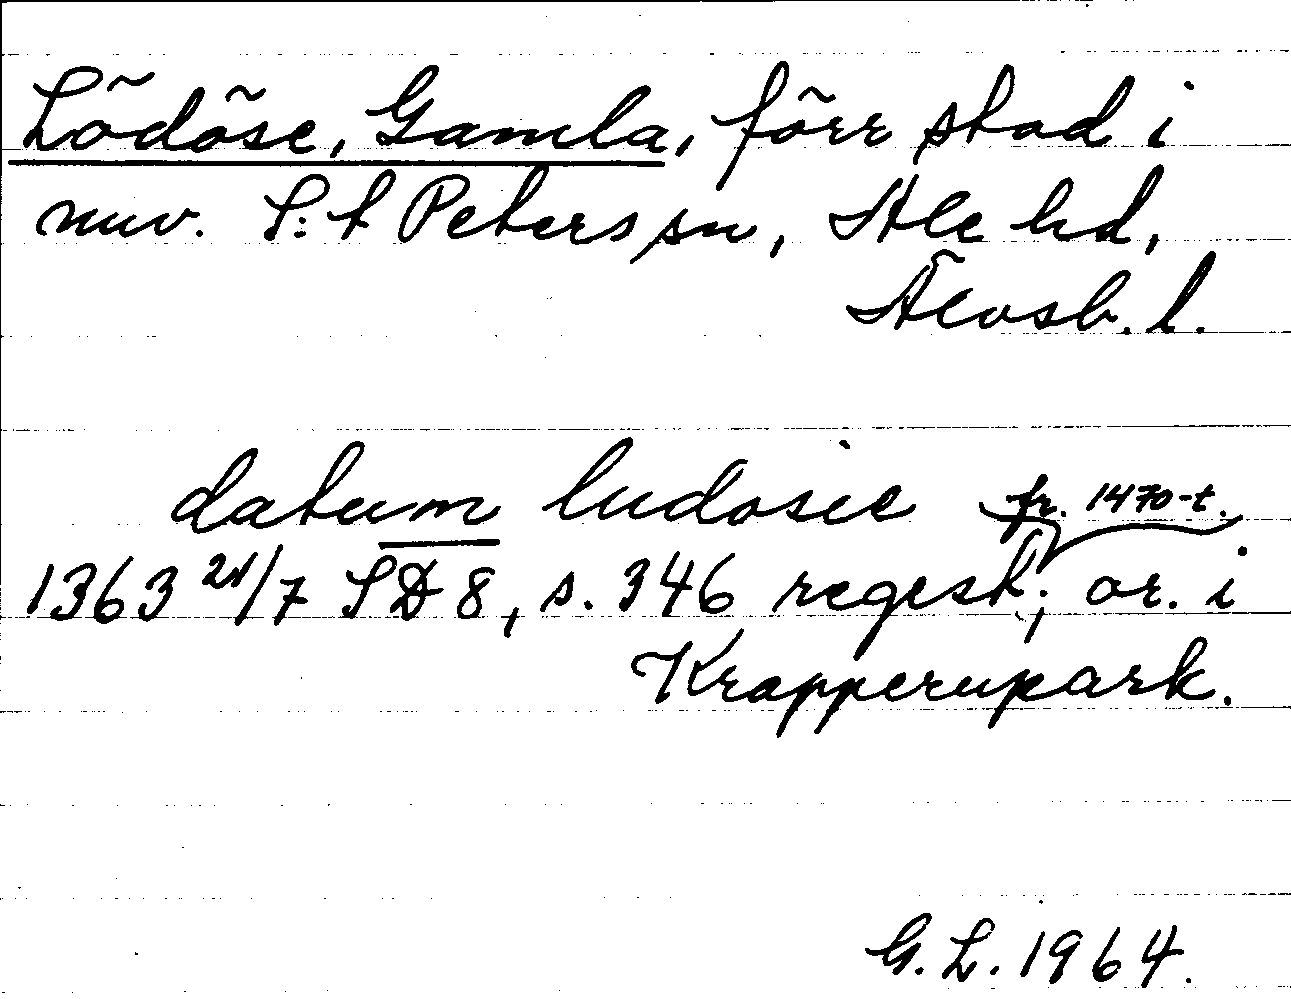 Lödöse, Gamla, förr stad i
nuv. S:t Peters sn, Ale hd,
Älvsb. l.
datum ludosie fr. 1470-t.
1363 21/7 SD 8, s. 346 regest; or. i
Krapperupark.
G. L. 1964.